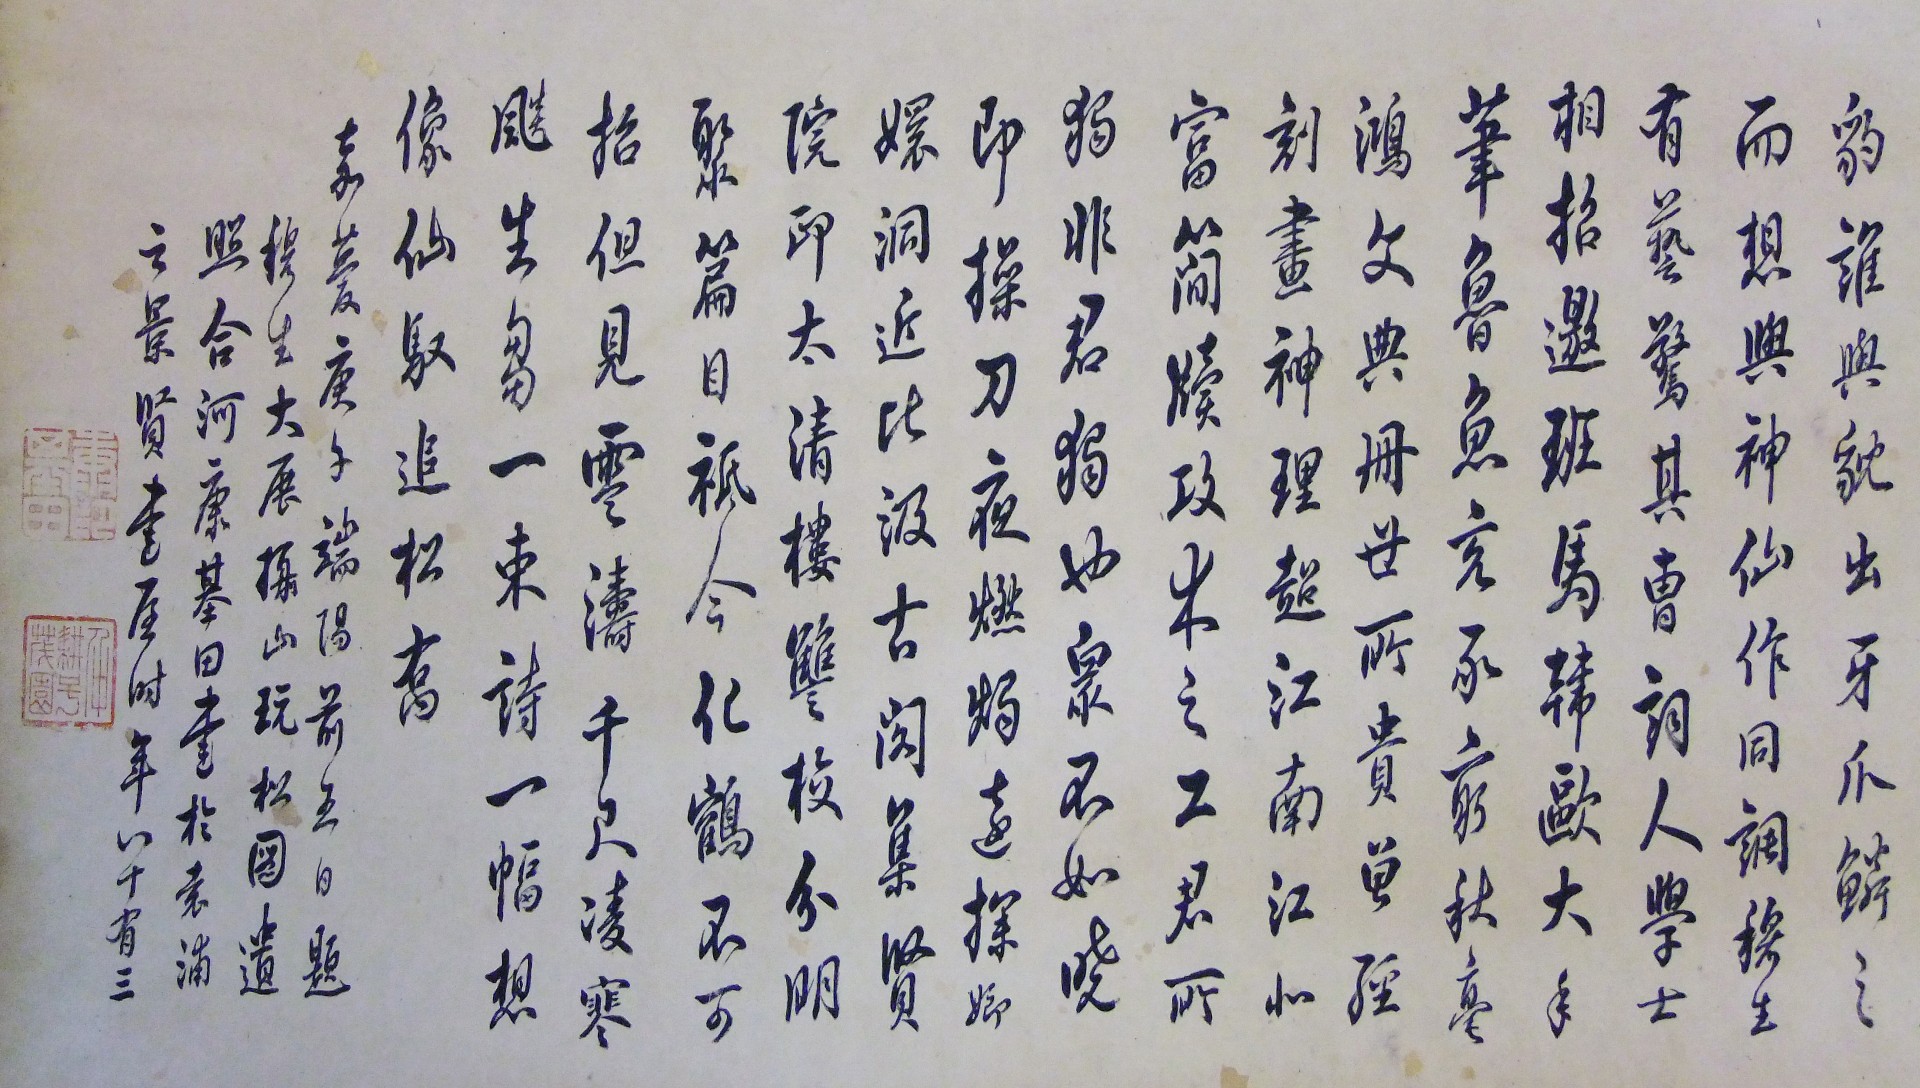 豹誰與貌出牙爪鱗之
而想與神仙作同調穆生
有藝驚其曹詞人學士
相招邀班馬韓歐大手
筆魯魚亥豕窮秋毫
鴻文典冊世所貴曾經
刻畫神理超江南江北
富簡牘攻木之工君所
獨非君獨也衆不如曉
即操刀夜燃燭遠探嫏
嬛洞近比汲古閣集賢
院即太清樓讐校分明
聚篇目祇今化鶴不可
招但見雲濤千尺凌寒
颷生芻一束詩一幅想
像仙馭追松喬
嘉慶庚午端陽前五日題
穆生大展攝山玩松圖遺
照合河康基田書於袁浦
之景賢書屋時年八十有三